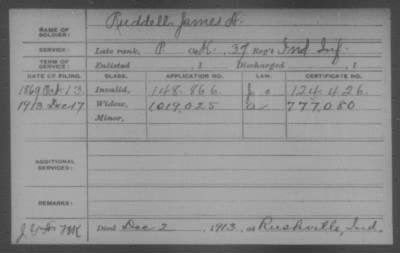 Ruddell James H.
NAME OF SOLDIER:
SERVICE: Late rank, P Co. K, 37 Reg't Ind Inf.
TERM OF SERVICE: Enlisted , 1 Discharged , 1
DATE OF FILING. CLASS. APPLICATION NO. LAW. CERTIFICATE NO.
1869 Oct 13 Invalid, 148.866 124.426.
1913 Dec 17 Widow, 1019,025 777,080.
Minor,
ADDITIONAL SERVICES:
REMARKS:
Died Dec 2, 1913, at Rushville, Ind.